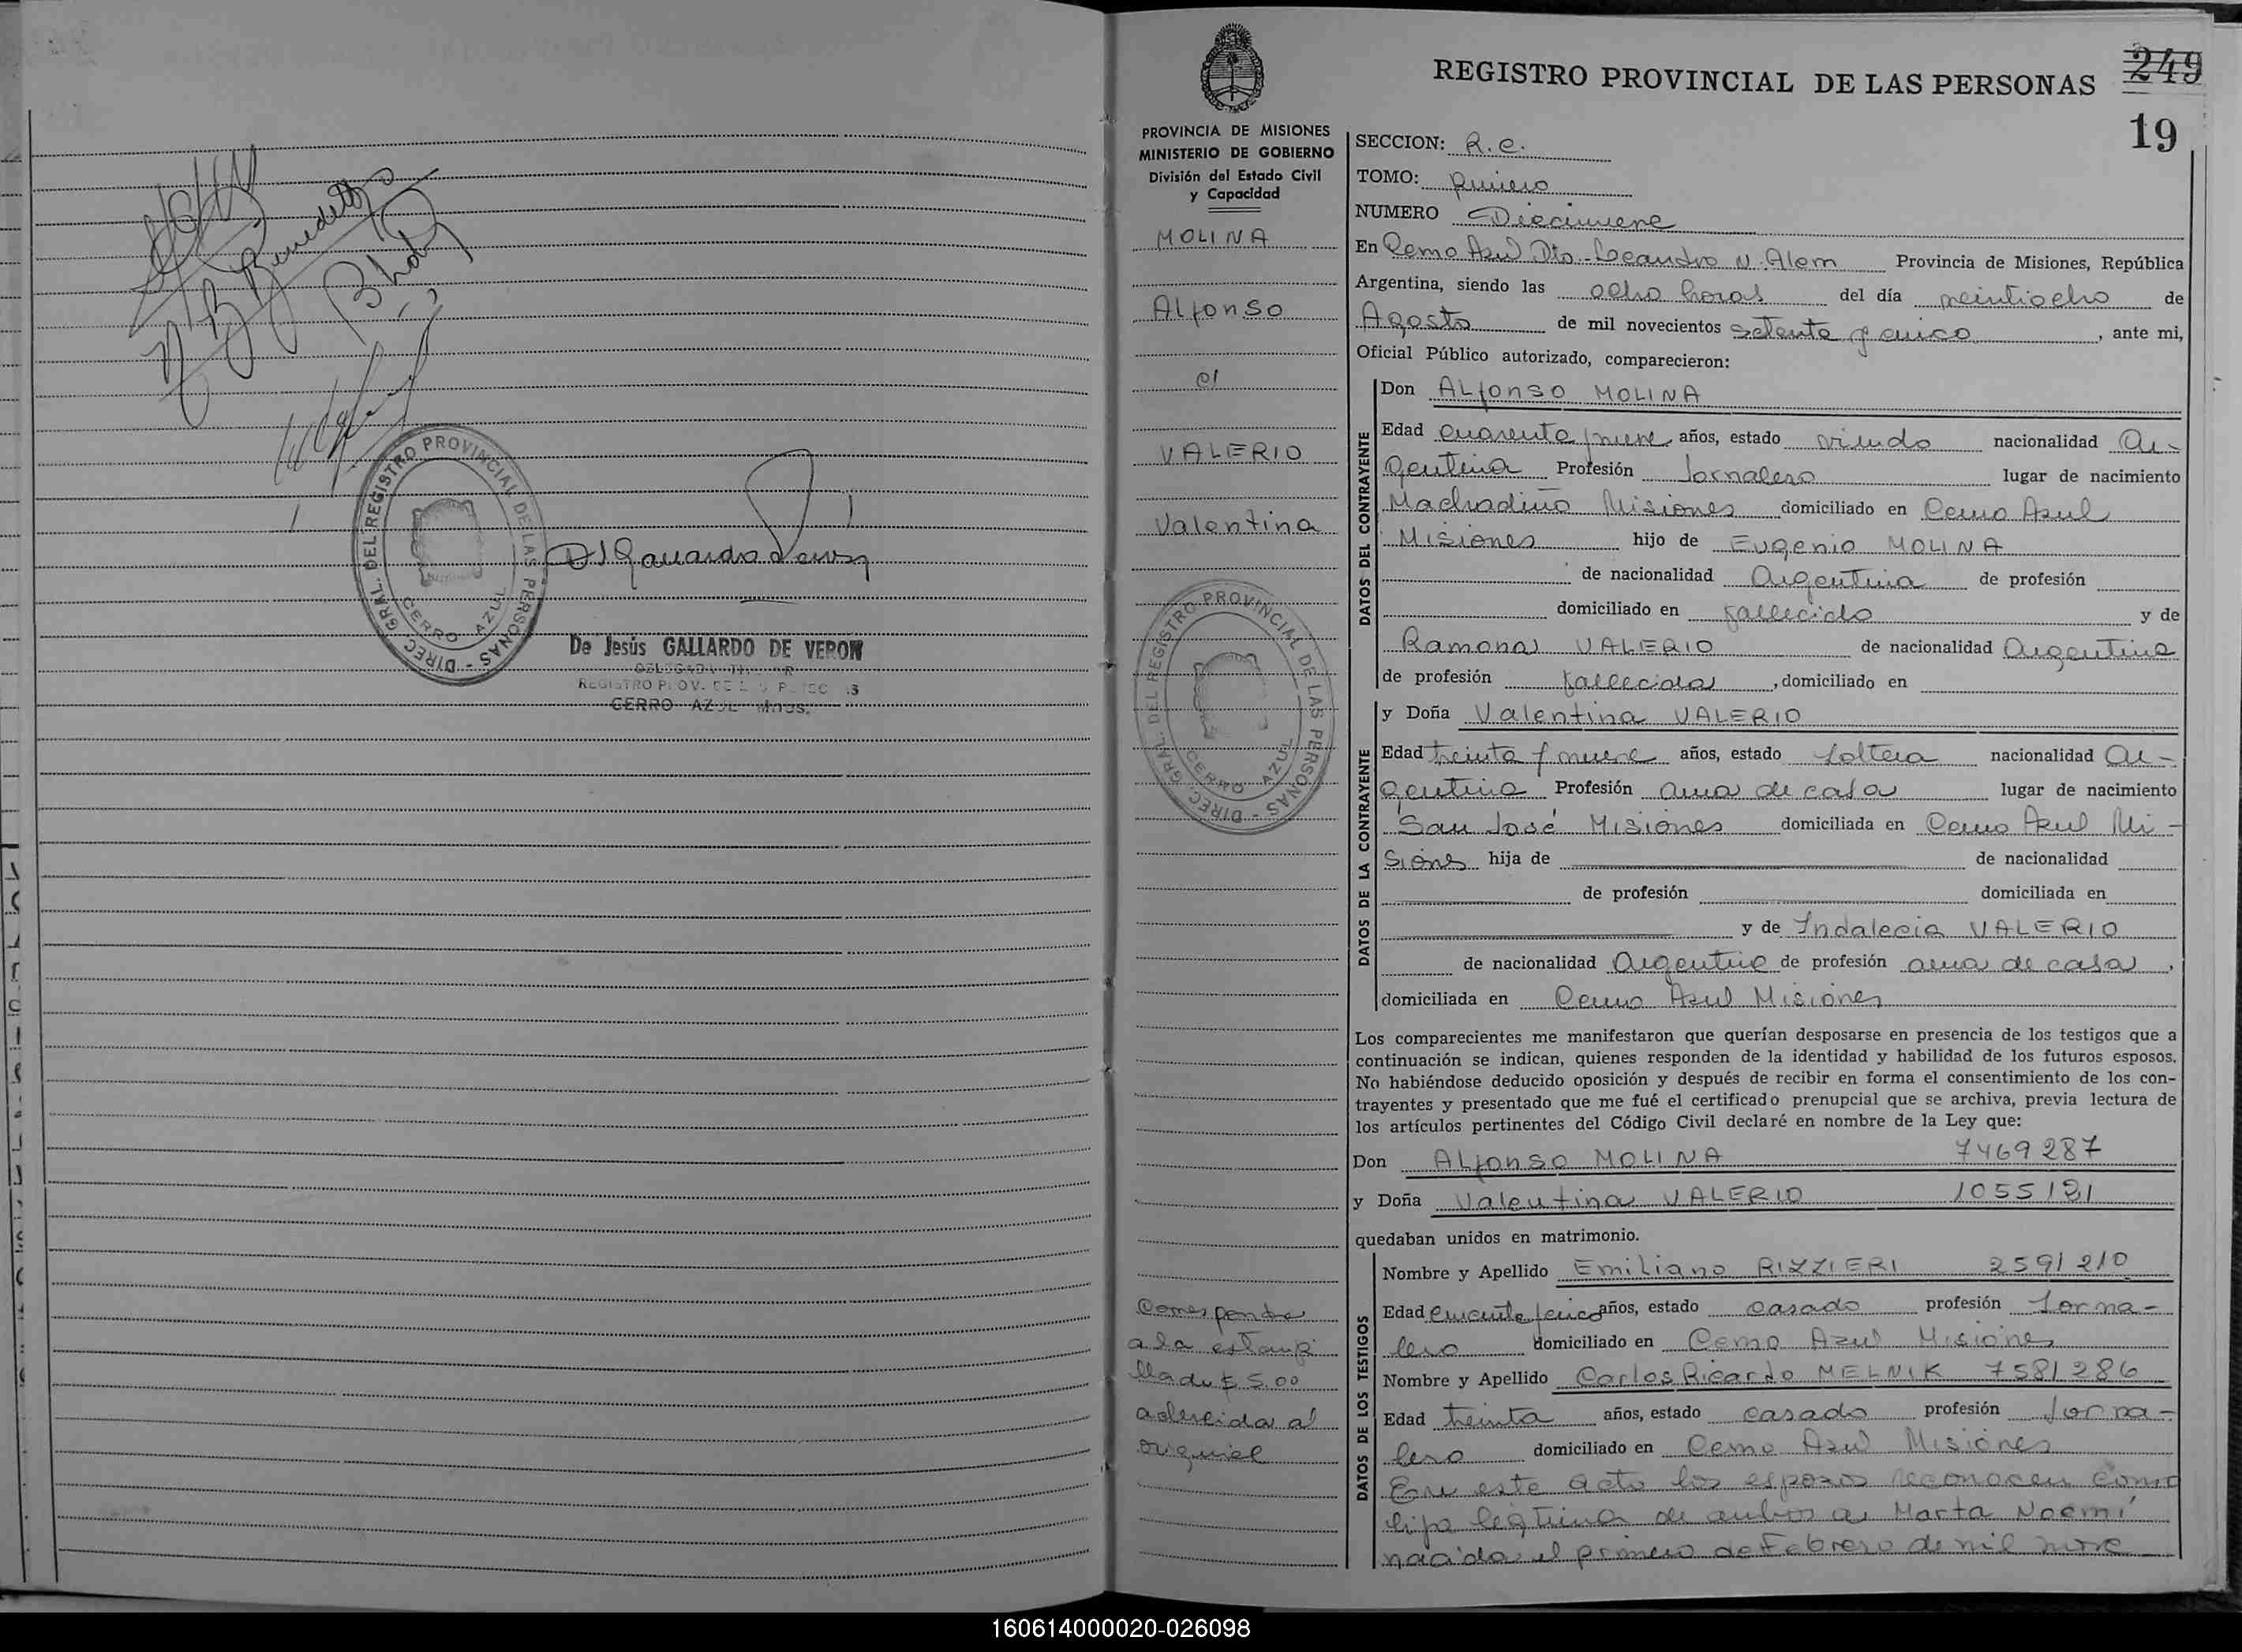 Benedetto
REGISTRO PROVINCIAL DE LAS PERSONAS
DIREC. GRAL. DEL
CERRO AZUL
De Jesús GALLARDO DE VERON
DELEGADA
REGISTRO PROV. DE
CERRO AZUL Mnes.
REGISTRO PROVINCIAL DE LAS PERSONAS
249
19
PROVINCIA DE MISIONES
MINISTERIO DE GOBIERNO
División del Estado Civil
y Capacidad
MOLINA
Alfonso
c/
VALERIO
Valentina
DIREC. GRAL. DEL REGISTRO PROVINCIAL DE LAS PERSONAS
CERRO AZUL
Corresponde
a la estampi
lla de $ 5.00
adherida al
original
SECCION: R.C.
TOMO: Primero
NUMERO Diecinueve
En Cerro Azul Dto. Leandro N. Alem Provincia de Misiones, República
Argentina, siendo las ocho horas del día veintiocho de
Agosto de mil novecientos setenta y cinco, ante mi,
Oficial Público autorizado, comparecieron:
DATOS DEL CONTRAYENTE
Don Alfonso MOLINA
Edad cuarenta y nueve años, estado viudo nacionalidad Ar-
gentina Profesión Jornalero lugar de nacimiento
Machadiño Misiones domiciliado en Cerro Azul
Misiones hijo de Eugenio MOLINA
de nacionalidad Argentina de profesión
domiciliado en fallecido y de
Ramona VALERIO de nacionalidad Argentina
de profesión fallecida, domiciliado en
DATOS DE LA CONTRAYENTE
y Doña Valentina VALERIO
Edad treinta y nueve años, estado soltera nacionalidad Ar-
gentina Profesión ama de casa lugar de nacimiento
San José Misiones domiciliada en Cerro Azul Mi-
siones hija de de nacionalidad
de profesión domiciliada en
y de Indalecia VALERIO
de nacionalidad Argentina de profesión ama de casa,
domiciliada en Cerro Azul Misiones
Los comparecientes me manifestaron que querían desposarse en presencia de los testigos que a
continuación se indican, quienes responden de la identidad y habilidad de los futuros esposos.
No habiéndose deducido oposición y después de recibir en forma el consentimiento de los con-
trayentes y presentado que me fué el certificado prenupcial que se archiva, previa lectura de
los artículos pertinentes del Código Civil declaré en nombre de la Ley que:
Don Alfonso MOLINA 7469287
y Doña Valentina VALERIO 1055121
quedaban unidos en matrimonio.
DATOS DE LOS TESTIGOS
Nombre y Apellido Emiliano RIZZIERI 2591210
Edad cincuenta y cinco años, estado casado profesión Jorna-
lero domiciliado en Cerro Azul Misiones
Nombre y Apellido Carlos Ricardo MELNIK 7581286
Edad treinta años, estado casado profesión Jorna-
lero domiciliado en Cerro Azul Misiones
En este acto los esposos reconocen como
hija legítima de ambos a Marta Noemí
nacida el primero de Febrero de mil nove
160614000020-026098